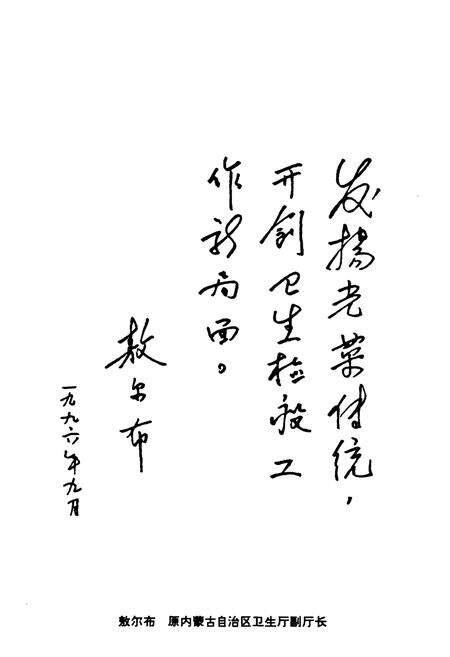 发扬光荣传统，
开创卫生检验工
作新局面。
敖尔布
一九九六年九月
敖尔布 原内蒙古自治区卫生厅副厅长